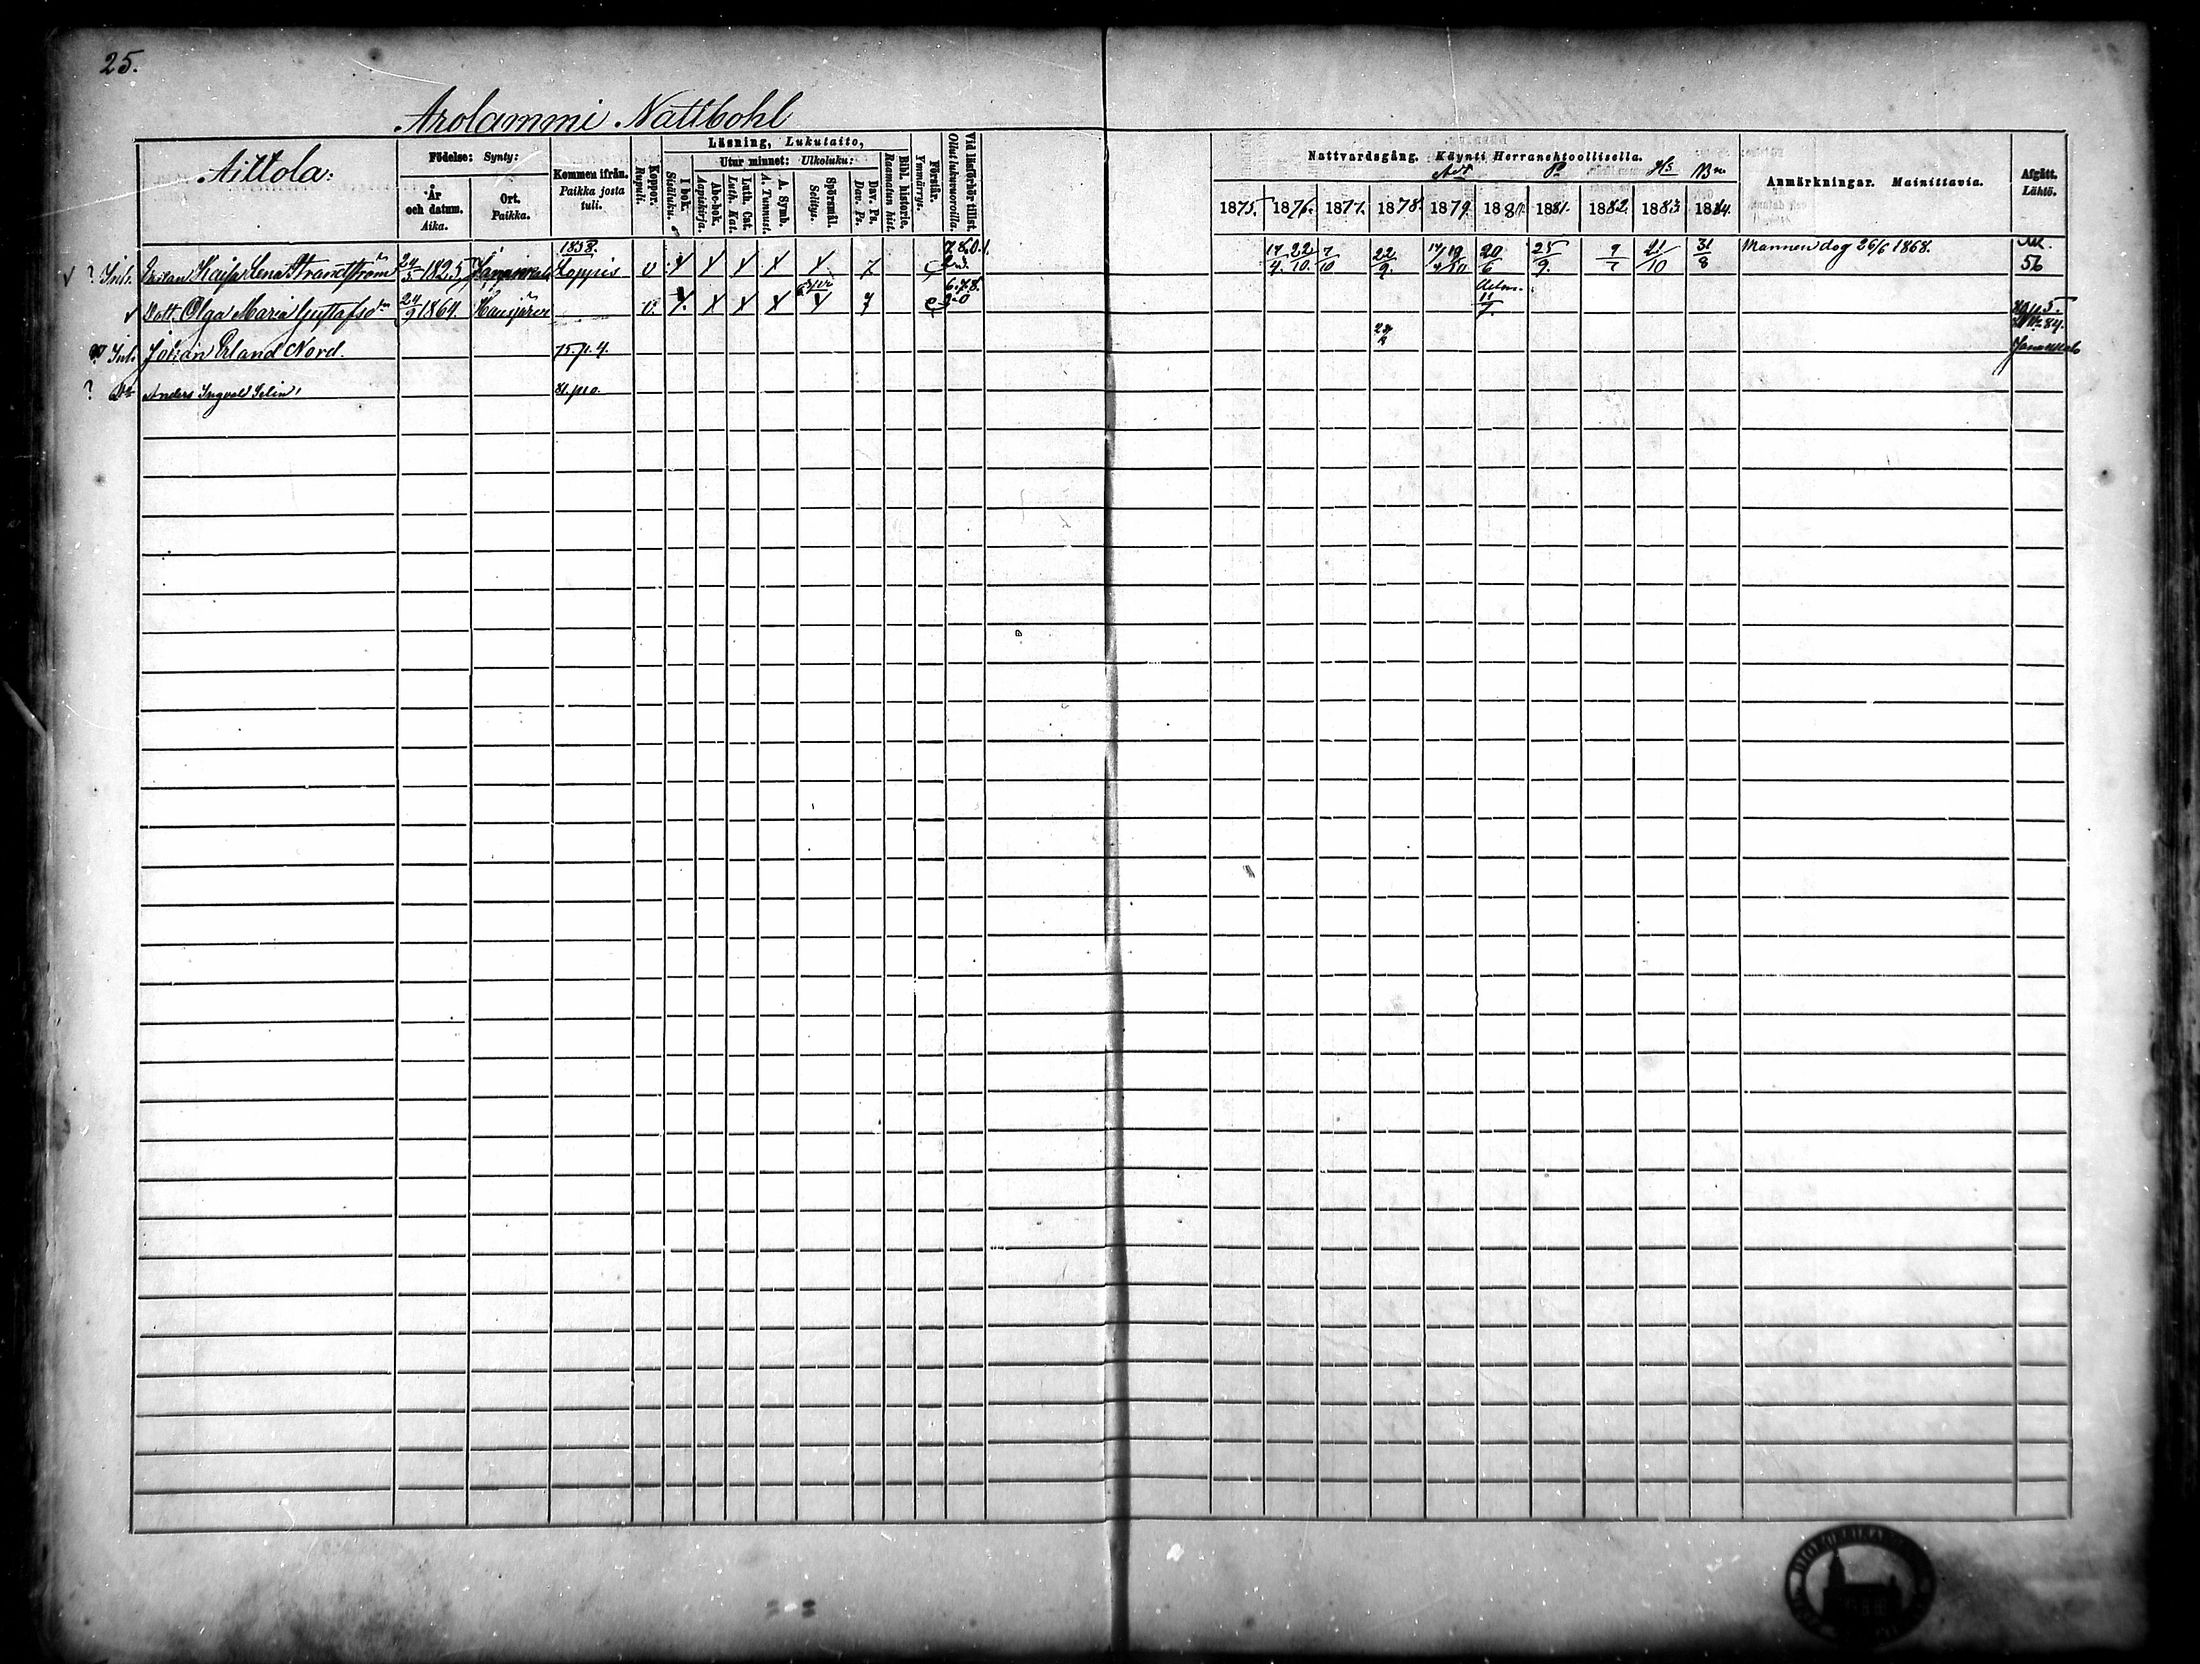 25.
Arolammi Nattbohl
Aittola:
Födelse: Synty:
År och datum. Aika.
Ort. Paikka.
Kommen ifrån. Paikka josta tuli.
Koppor. Rupuli.
Läsning, Lukutaito,
I bok. Sisäluku.
Utur minnet: Ulkoluku:
Abc-bok. Aapiskirja.
Luth. Cat. Luth. Kat.
A. Symb. A. Tunnust.
Spörsmål: Selitys.
Dav. Ps. Dav. Ps.
Bibl. historie. Raamatun hist.
Förstår. Ymmärrys.
Vid läsförhör tillst. Ollut lukuvuoroilla.
Nattvardsgång. Käynti Herranehtoollisella.
1875. 1876. 1877. 1878. 1879. 1880. 1881. 1882. 1883. 1884.
Anmärkningar. Mainittavia.
Afgått. Lähtö.
? Inh. Enkan Kajsa Lena Strandström 24/5 1825 Janakkala 1858. Loppis v 17/4 22/10 7/10 22/9 17/4 19/10 20/6 25/9 9/7 21/10 31/8 Mannen dog 26/6 1868. 56
Dott. Olga Maria Gustafsdr 24/9 1864 Hausjärvi v. 11/7
Inh. Johan Erland Nord. 75. p. 4. Janakkala
? Dr Anders Ingvald Selin 81. p10.